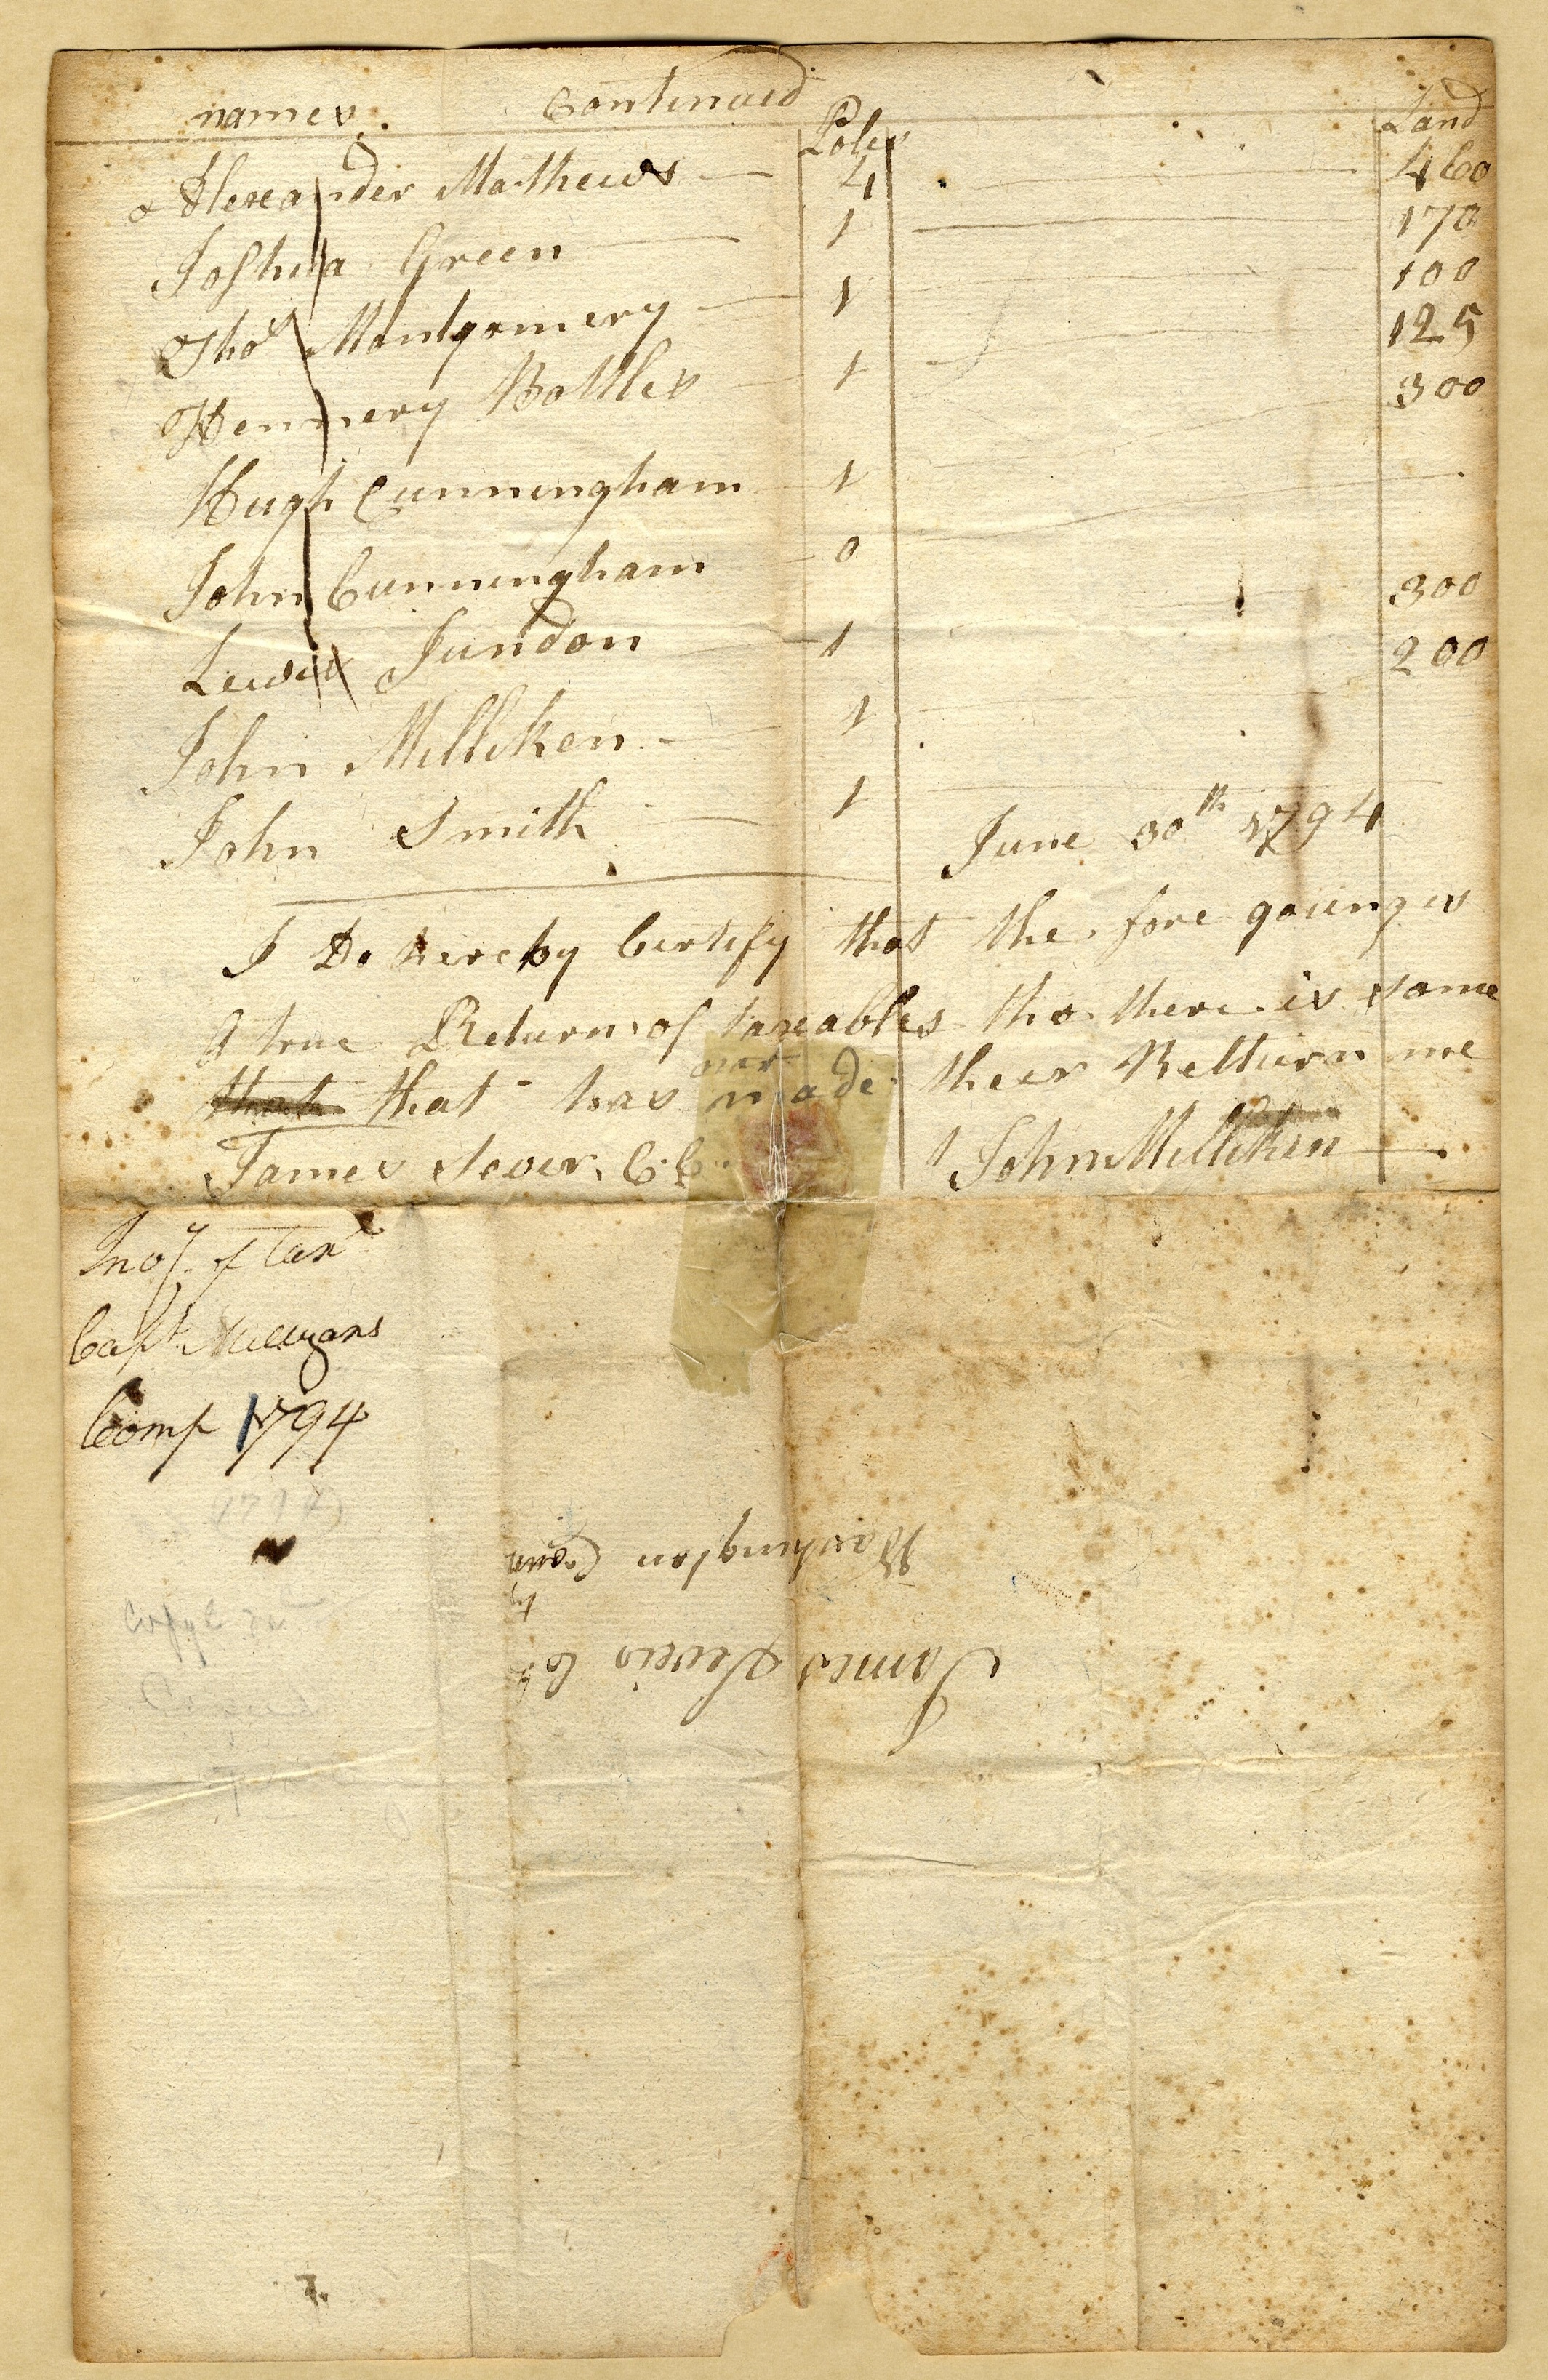 names Continued Poles Land
Alexander Mathews 4 460
Joshua Green 1 170
Thos Montgomery 1 100
Hennery Bottles 1 125
300
Hugh Cunningham 1
John Cunningham 0 300
Lewis Jundon 1 200
John Milliken 1
John Smith 1
June 30th 1794
I Do hereby Certify that the fore going is
A true Return of taxables tho there is some
that that has made their Retturn me
James Sever. C.C. John Milliken
Invy. of Taxe
Capt. Milligans
Comp 1794
James Seveir Clk
Washington County